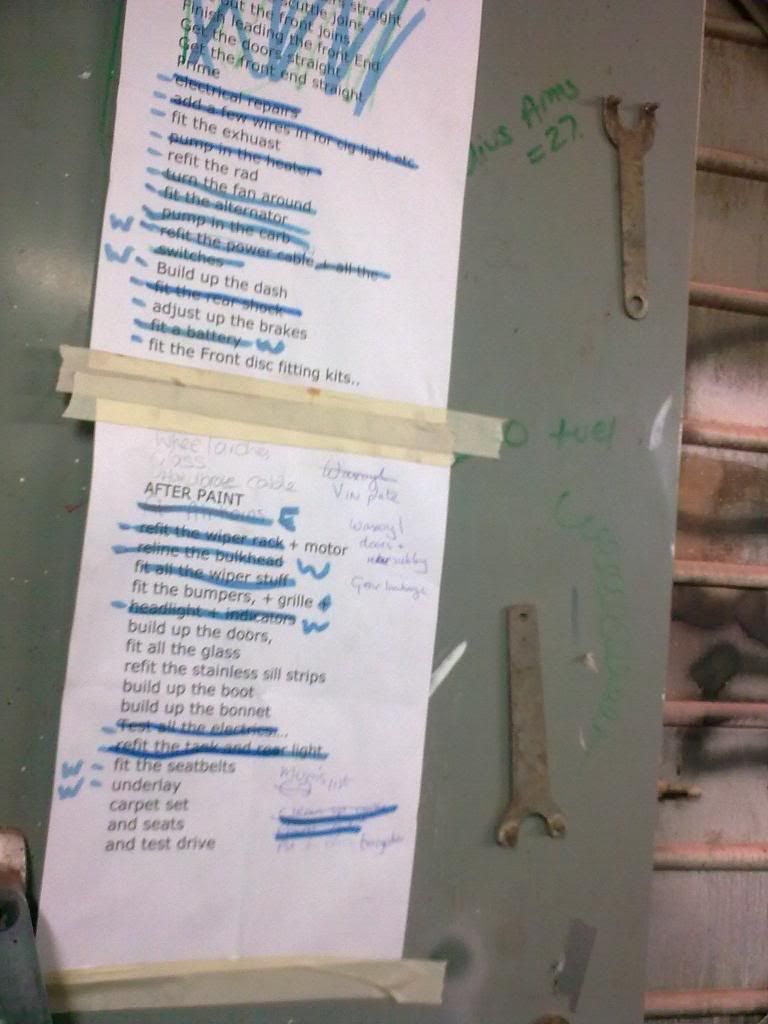 straight
scuttle joins
out the front joins
Finish leading the front End
Get the doors straight
Get the front end straight
prime
electrical repairs
add a few wires in for cig light etc
fit the exhuast
pump in the heater
refit the rad
turn the fan around
fit the alternator
pump in the carb
refit the power cable, + all the
switches
Build up the dash
fit the rear shock
adjust up the brakes
fit a battery
fit the Front disc fitting kits..
Arms
=27
fuel
cable
VIN plate
AFTER PAINT
refit the wiper rack + motor
reline the bulkhead
fit all the wiper stuff
doors +
fit the bumpers, + grille +
headlight + indicators
build up the doors,
fit all the glass
refit the stainless sill strips
build up the boot
build up the bonnet
Test all the electrics...
refit the tank and rear light,
fit the seatbelts
underlay
carpet set
and seats
and test drive